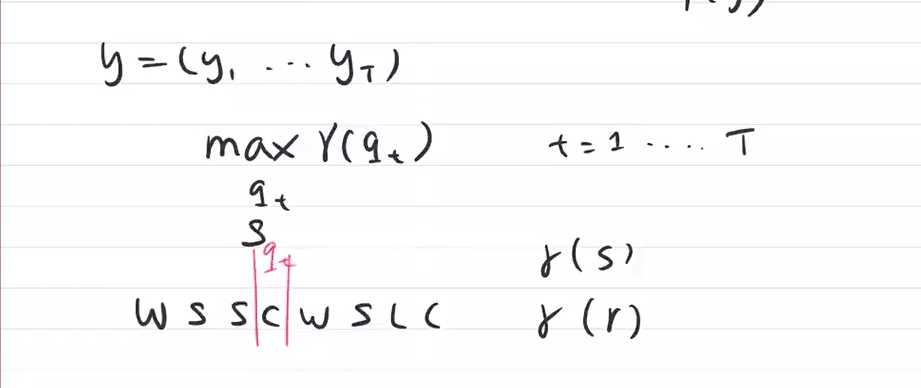 y = (y₁ ... y_T)
max γ(q_t) t = 1 .... T
q_t
S
q_t γ(s)
W S S C W S L C γ(r)